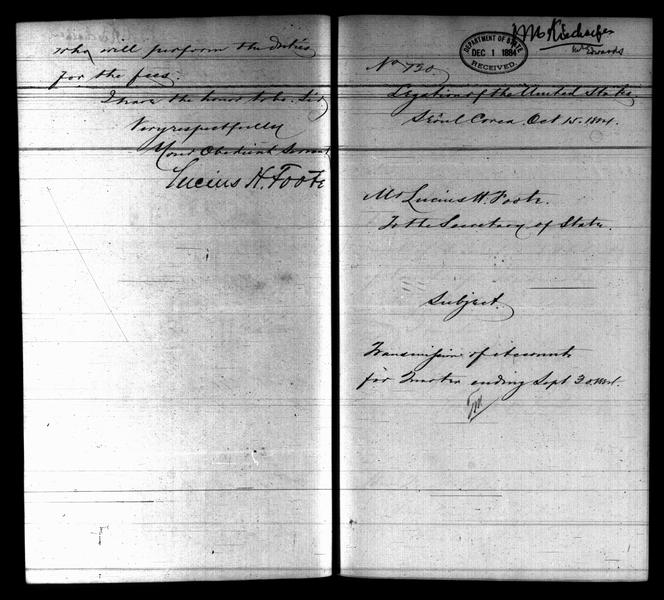 who will perform the duties
for the fees.
I have the honor to be. Sir
Very respectfully
Your Obedient Servant
Lucius H. Foote
DEPARTMENT OF STATE
DEC 1 1884
RECEIVED.
Mr
Edwards
Legation of the United States.
Séoul Corea. Oct 15. 1884.
Mr Lucius H. Foote.
To the Secretary of State.
Subject.
Transmission of Accounts
for Quarter ending Sept 30.